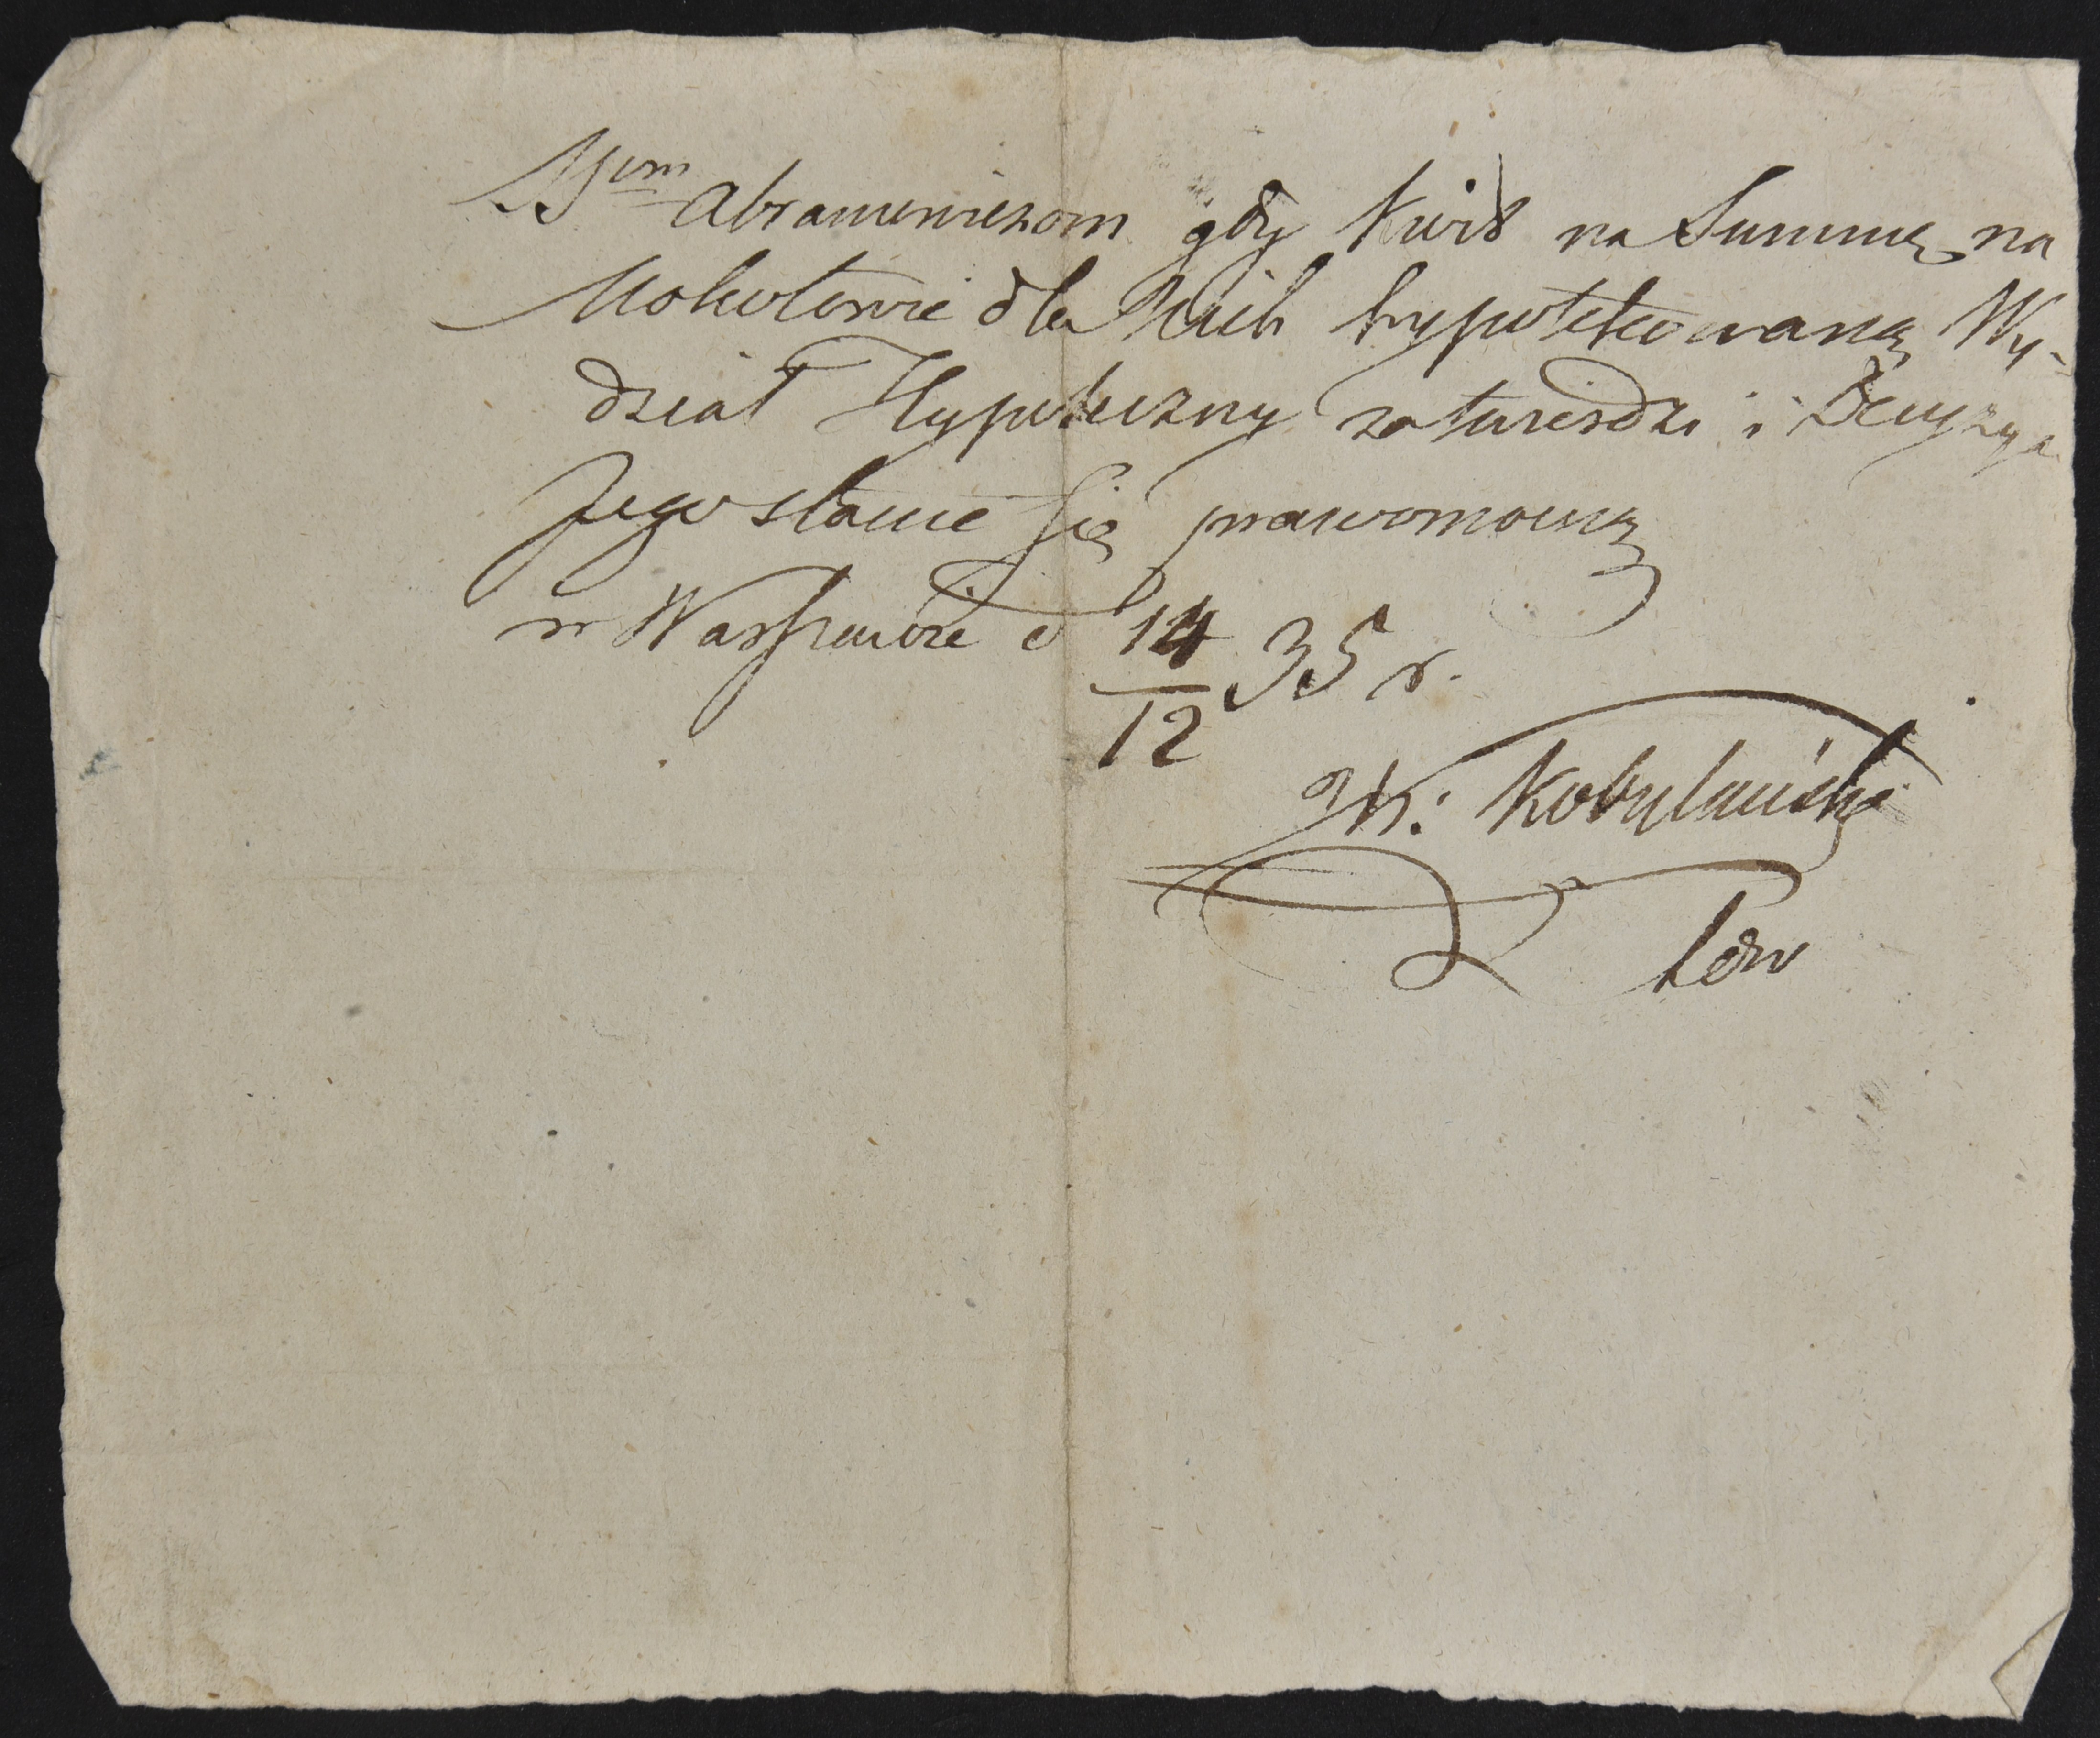 Abramowiczom gdy kwit na Summę na
Mokotowie dla Nich hypotekowaną Wy-
dział Hypoteczny zatwierdzi i Decyzya
Jego stanie się prawomocną
w Warszawie d 14/12 35 r.
W: Kobylański